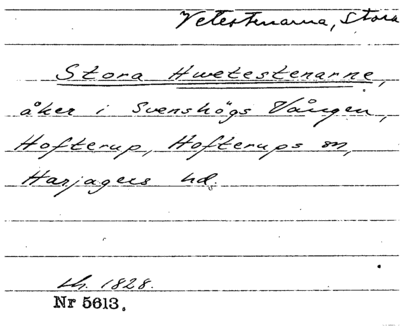 Vetestenarna, Stora
Stora Hwetestenarne,
åker i Svenshögs Vången,
Hofterup, Hofterups sn,
Harjagers hd.
lh. 1828.
Nr 5613.